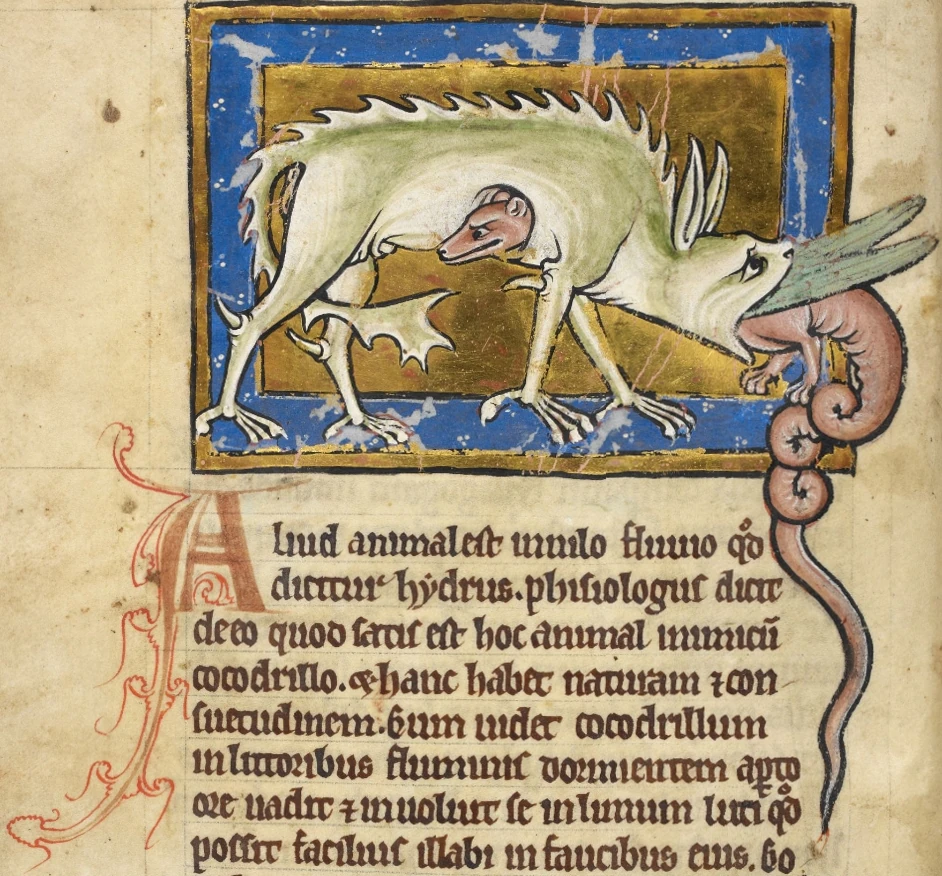 Aliud animal est in nilo fluuio qđ
dicitur hẏdrus. phisiologus dicit
de eo quod satis est hoc animal inimicū
cocodrillo. & hanc habet naturam ⁊ con
suetudinem. Cum uidet cocodrillum
in littoribus fluminis dormientem apto
ore uadit ⁊ inuoluit se in limum luti qđ
possit facilius illabi in faucibus eius. Co